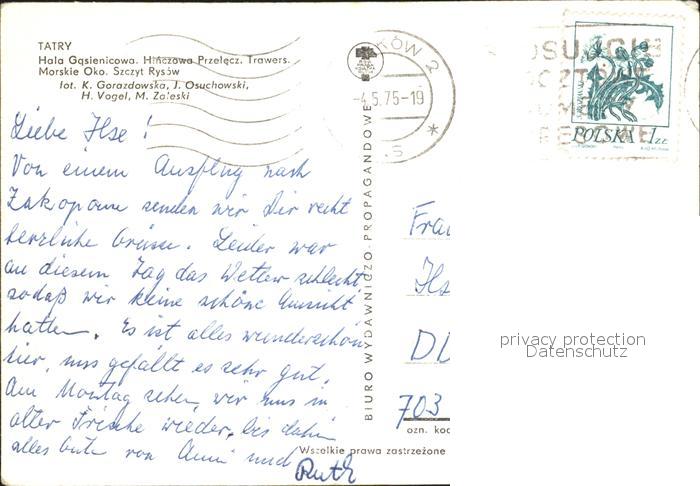 TATRY
Hala Gąsienicowa. Hińczowa Przełęcz. Trawers.
Morskie Oko. Szczyt Rysów
fot. K. Gorazdowska, J. Osuchowski,
H. Vogel, M. Zaleski
KÓW 2
-4.5.75-19
POLSKA 1 ZŁ
Liebe Ilse!
Von einem Ausflug nach
Zakopane senden wir Dir recht
herzliche Grüsse. Leider war
an diesem Tag das Wetter schlecht,
sodaß wir keine schöne Aussicht
hatten. Es ist alles wunderschön
hier, uns gefällt es sehr gut.
Am Montag sehen wir uns in
alter Frische wieder, bis dahin
alles Gute von Anni und
Ruth
BIURO WYDAWNICZO-PROPAGANDOWE
Frau
Ils
DD
703
ozn. kod
Wszelkie prawa zastrzeżone
privacy protection
Datenschutz